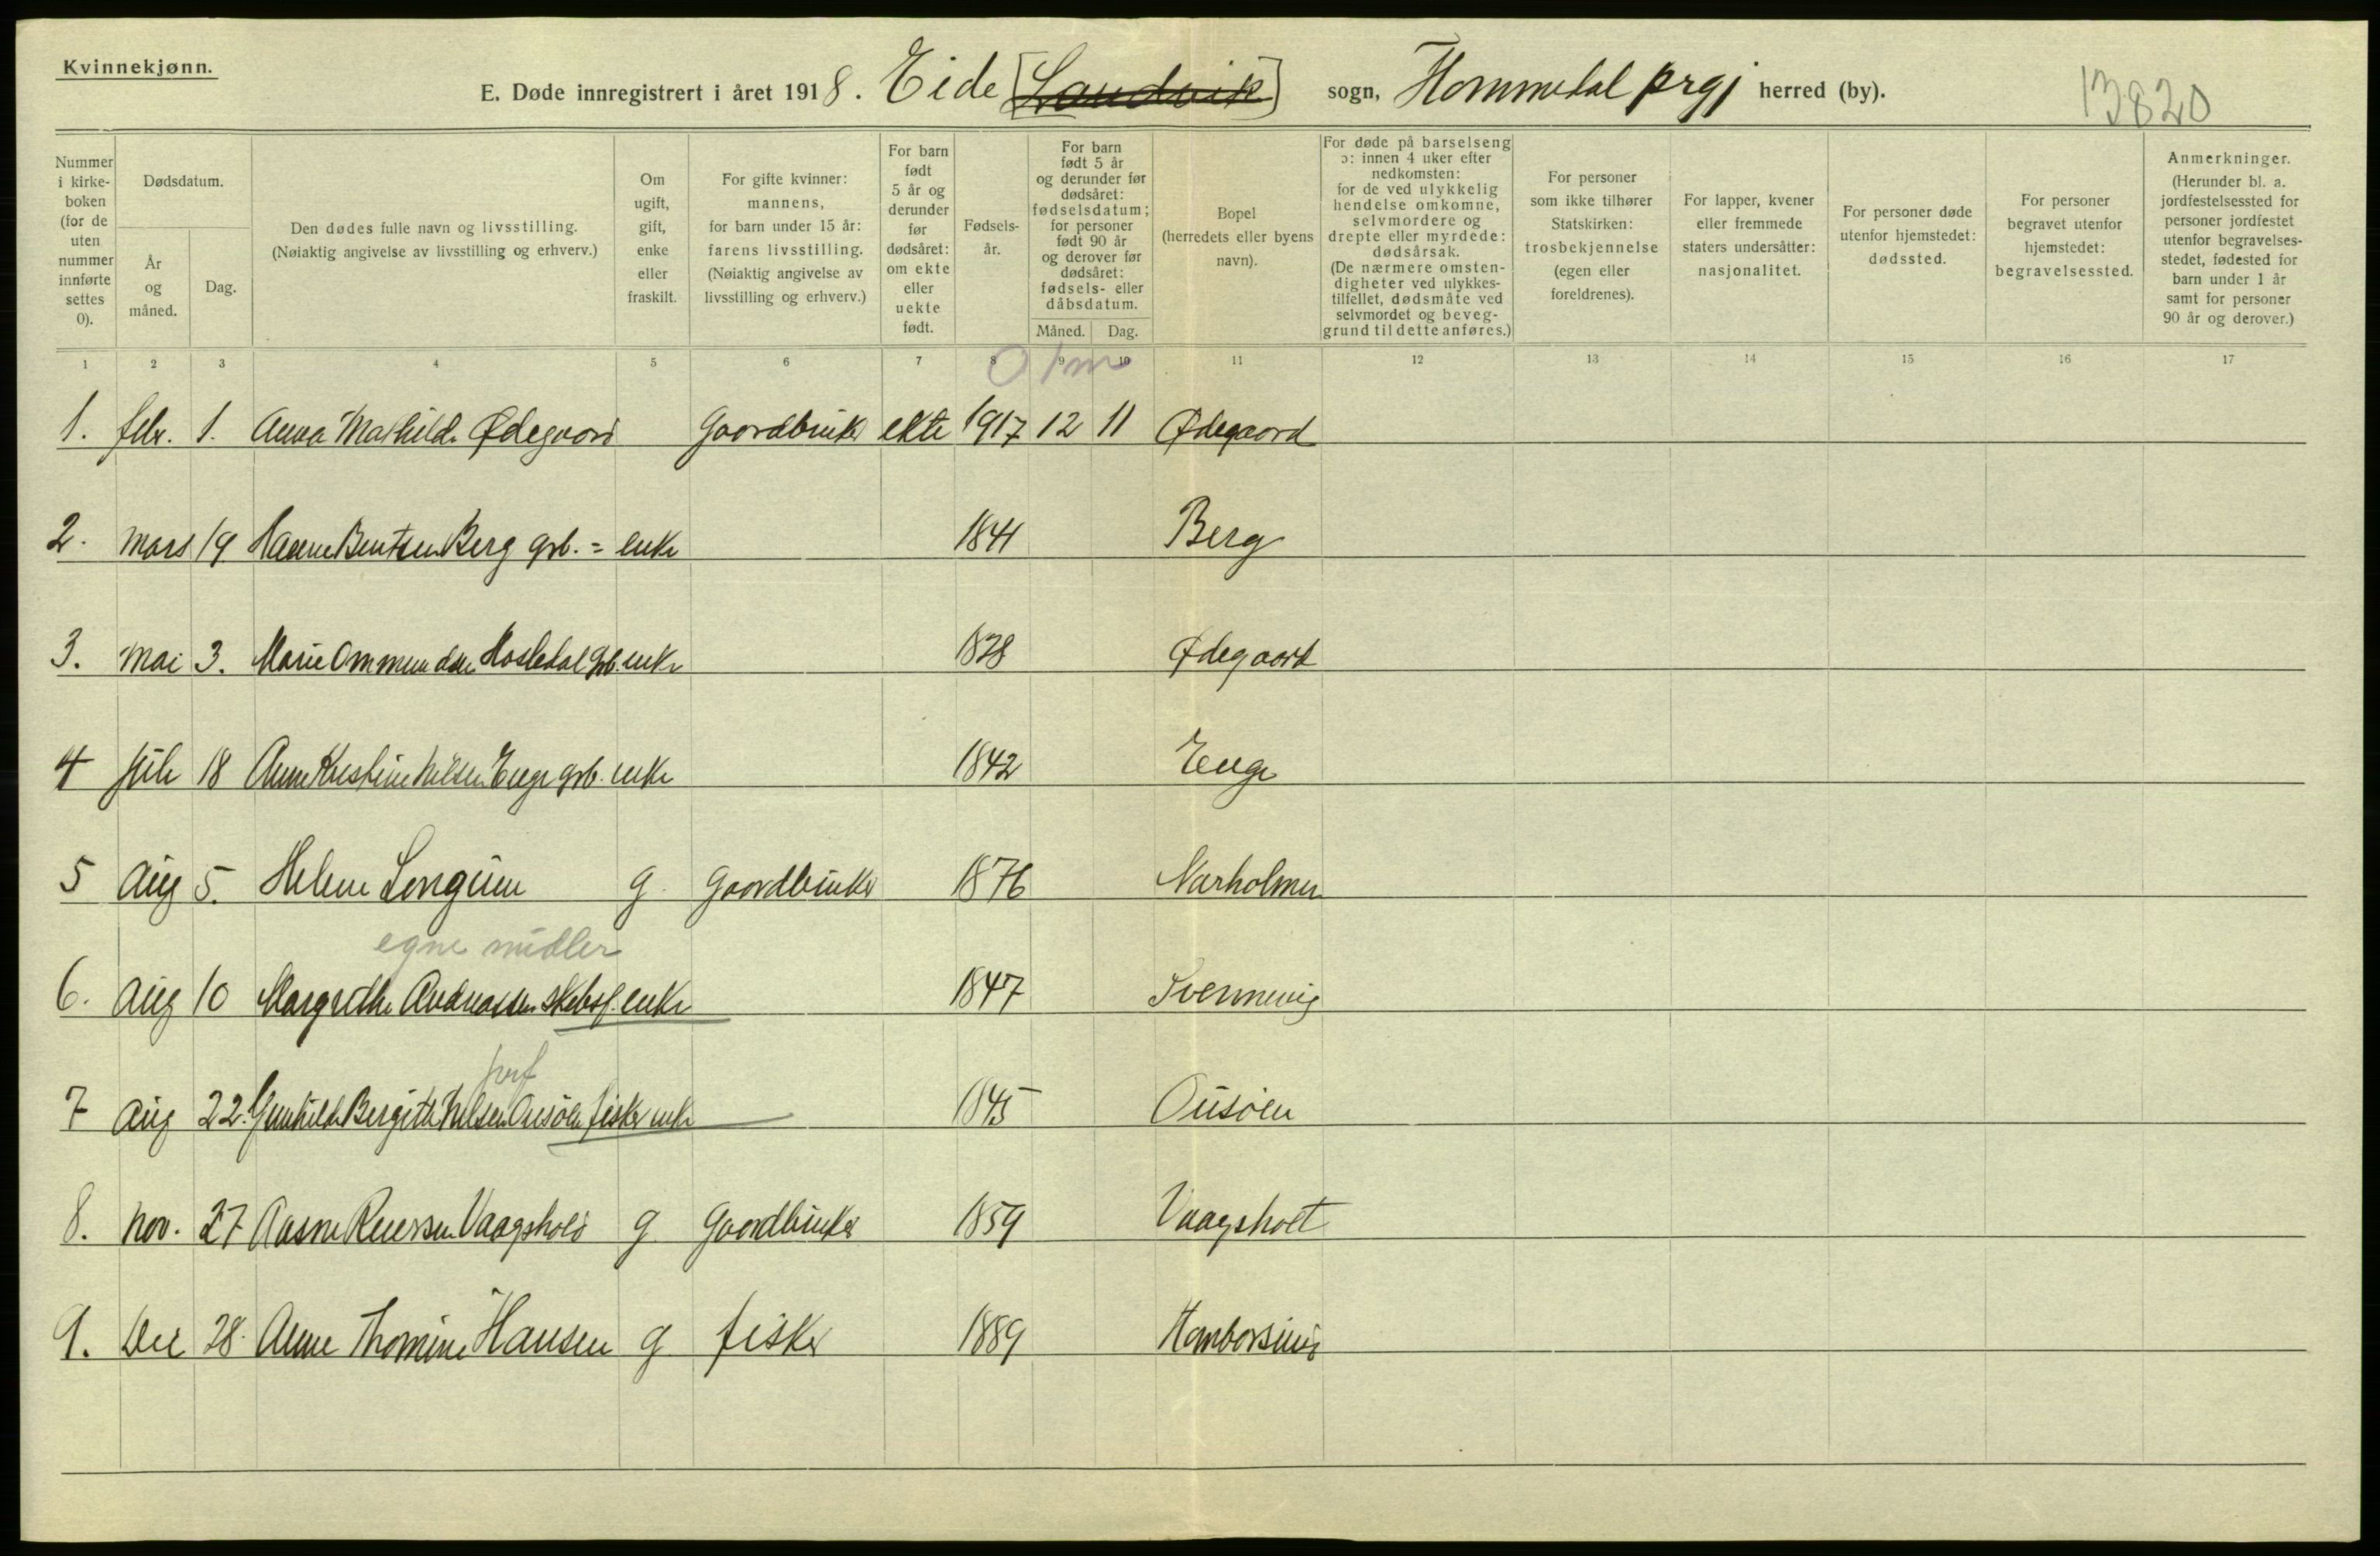 Kvinnekjønn.
E. Døde innregistrert i året 1918. Eide [Landvik] sogn, Hommedal prgj herred (by).
13820
Nummer i kirke-boken (for de uten nummer innførte settes 0).
Dødsdatum.
År og måned.
Dag.
Den dødes fulle navn og livsstilling.
(Nøiaktig angivelse av livsstilling og erhverv.)
Om ugift, gift, enke eller fraskilt.
For gifte kvinner: mannens, for barn under 15 år: farens livsstilling. (Nøiaktig angivelse av livsstilling og erhverv.)
For barn født 5 år og derunder før dødsåret: om ekte eller uekte født.
Fødsels-år.
For barn født 5 år og derunder før dødsåret: fødselsdatum; for personer født 90 år og derover før dødsåret: fødsels- eller dåbsdatum.
Måned. Dag.
Bopel (herredets eller byens navn).
For døde på barselseng ɔ: innen 4 uker efter nedkomsten: for de ved ulykkelig hendelse omkomne, selvmordere og drepte eller myrdede: dødsårsak. (De nærmere omsten-digheter ved ulykkes-tilfellet, dødsmåte ved selvmordet og beveg-grund til dette anføres.)
For personer som ikke tilhører Statskirken: trosbekjennelse (egen eller foreldrenes).
For lapper, kvener eller fremmede staters undersåtter: nasjonalitet.
For personer døde utenfor hjemstedet: dødssted.
For personer begravet utenfor hjemstedet: begravelsessted.
Anmerkninger. (Herunder bl. a. jordfestelsessted for personer jordfestet utenfor begravelses-stedet, fødested for barn under 1 år samt for personer 90 år og derover.)
1 2 3 4 5 6 7 8 9 10 11 12 13 14 15 16 17
0 1 m
1. febr. 1. Anna Mathilde Ødegaard Gaardbruker ekte 1917 12 11 Ødegaard
2. Mars 19 Hanne Bentsen Berg grb. = enke 1841 Berg
3. Mai 3. Marie Ommundsen Hasledal grb. enke 1828 Ødegaard
4 Juli 18 Anne Kristine Nilsen Enge grb. enke 1842 Enge
5 Aug 5. Helene Longum g. Gaardbruker 1876 Narholmen
egne midler
6. Aug 10 Margrethe Andreassen skibsf. enke 1847 Svennevig
7 Aug 22. Gunhilde Bergitte Nilsen Ousøen fisker enke 1845 Ousøen
8. Nov. 27 Aasne Reiersen Vaagsholt g Gaardbruker 1859 Vaagsholt
9. Dec 28. Anne Thomine Hansen g fisker 1889 Homborsund